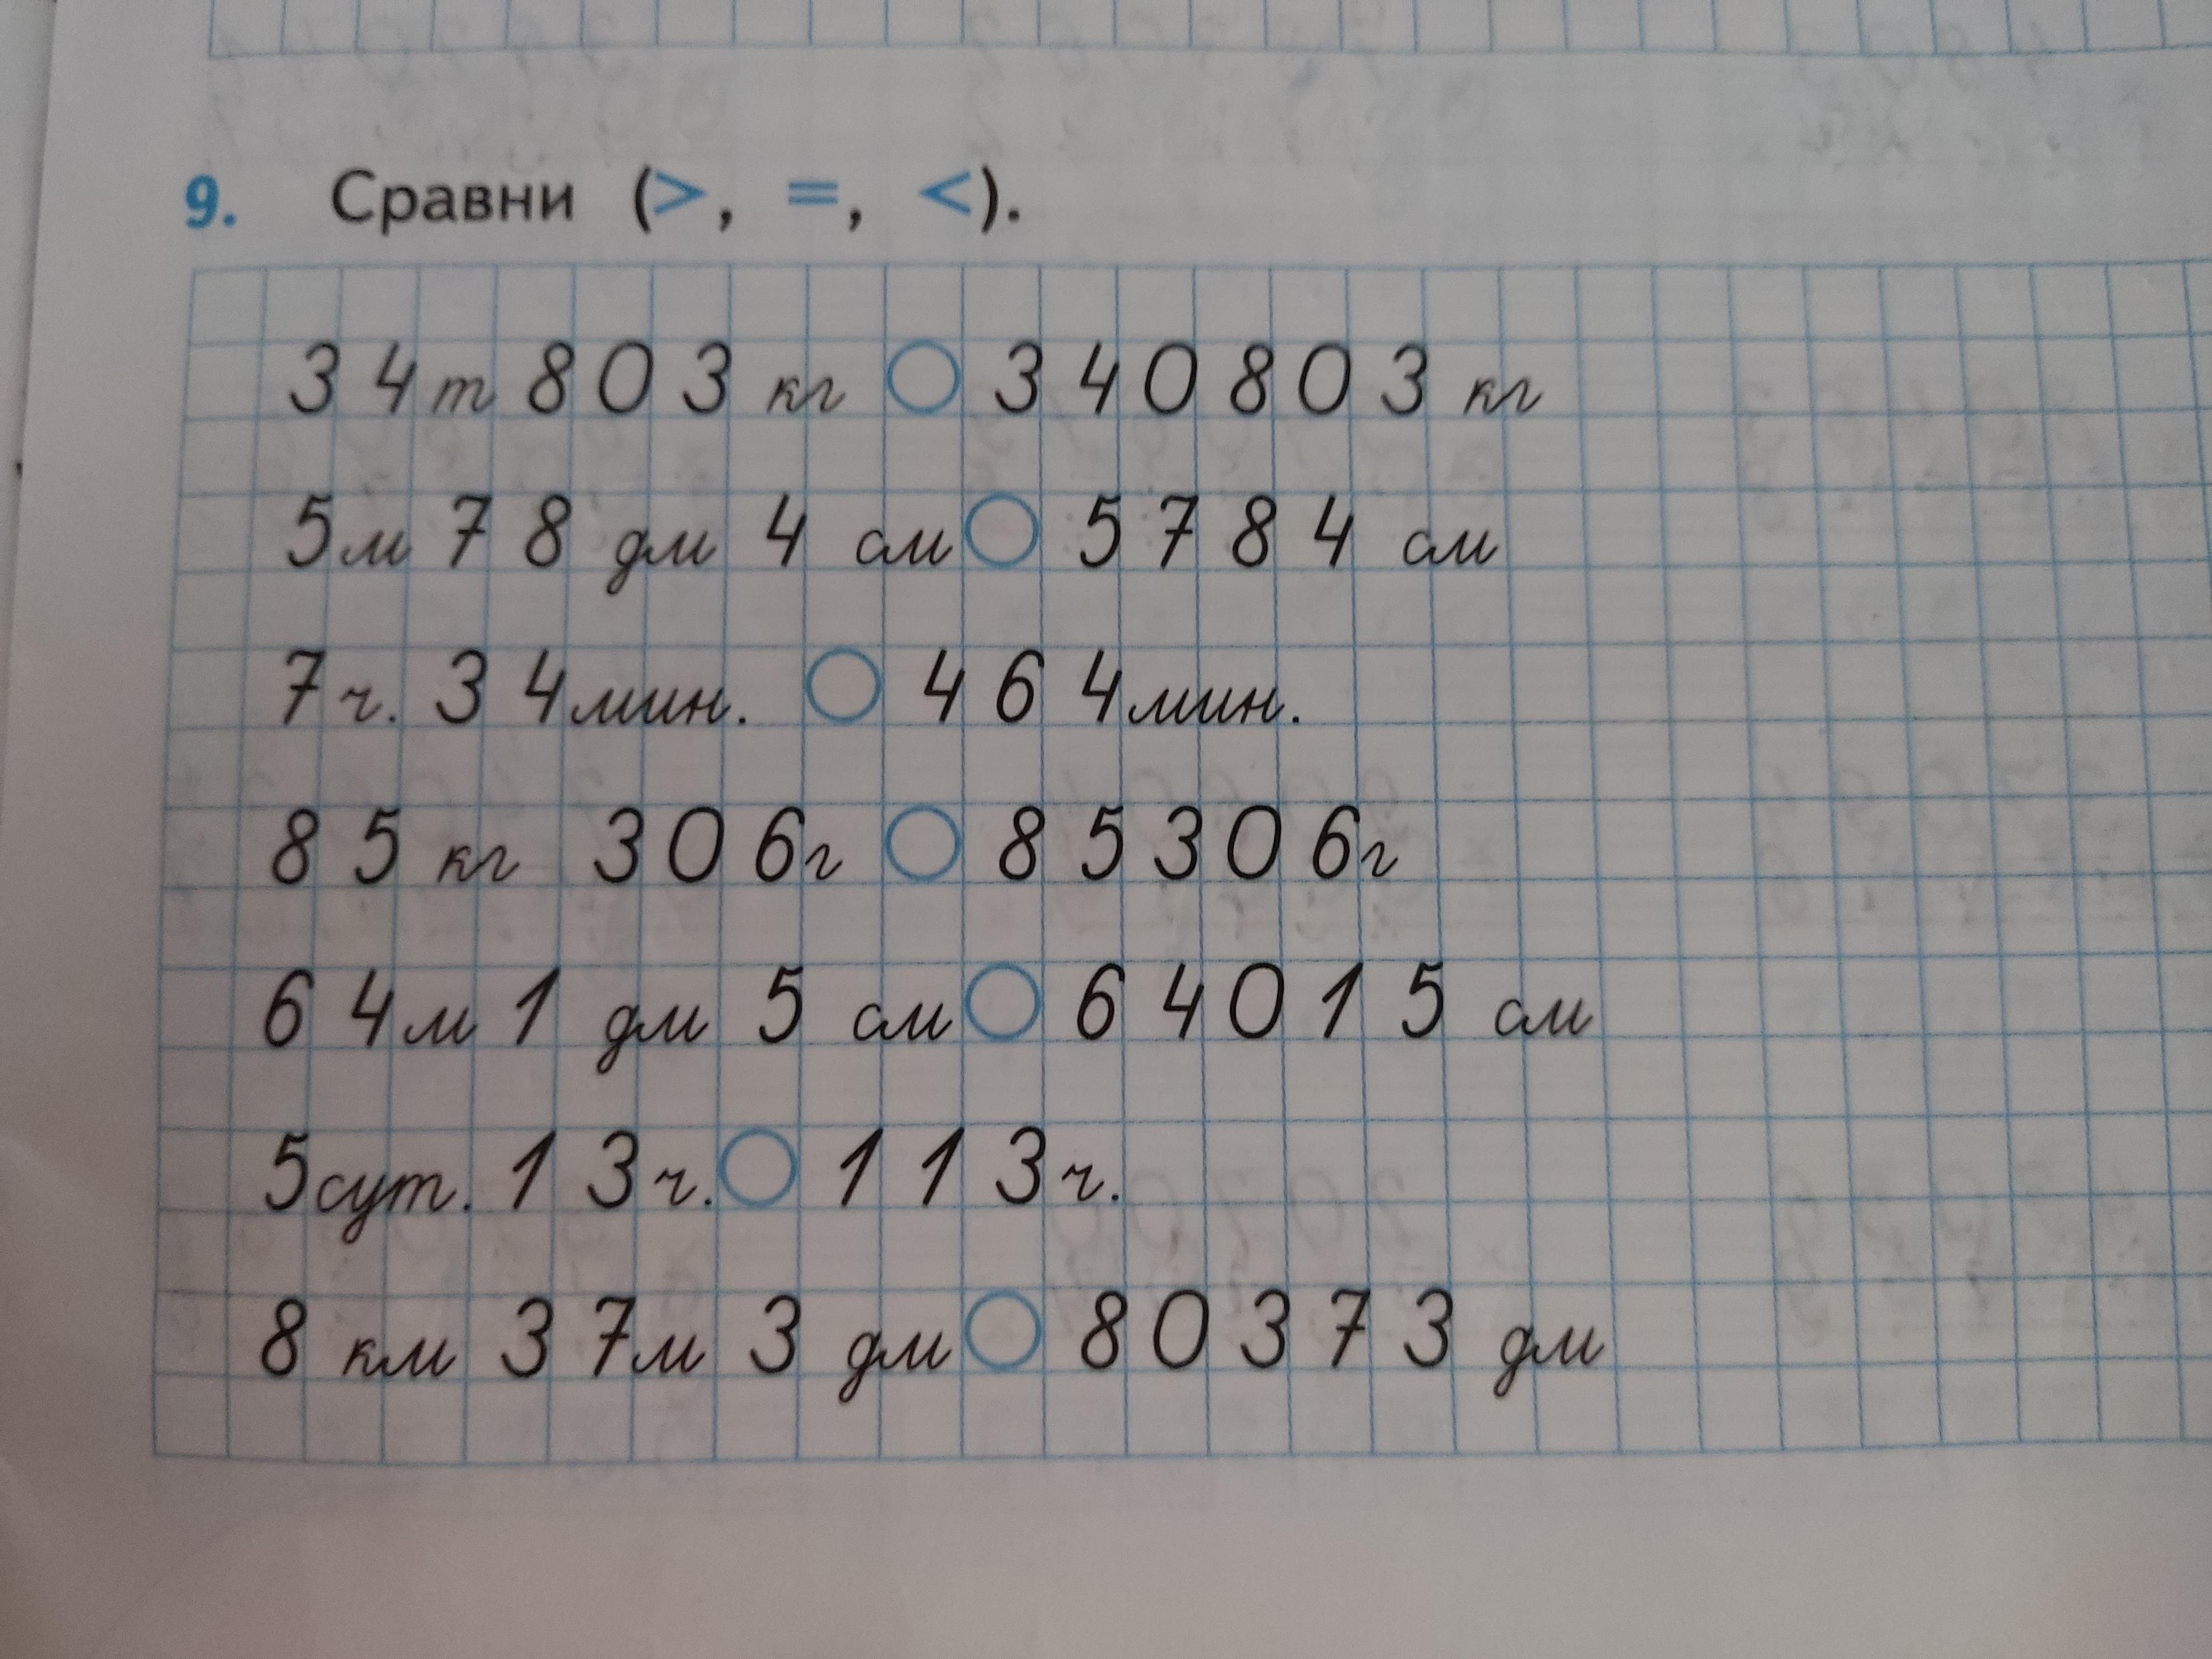 9. Сравни (>, =, <).
34т 803 кг ○ 340803 кг
5м 78 дм 4 см ○ 5784 см
7ч. 34мин. ○ 464мин.
85 кг 306г ○ 85306г
64м 1 дм 5 см ○ 64015 см
5сут. 13ч. ○ 113ч.
8 км 37м 3 дм ○ 80373 дм